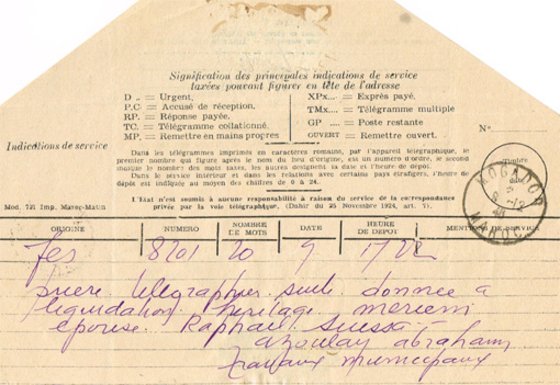 Signification des principales indications de service
taxées pouvant figurer en tête de l'adresse
D .. = Urgent. XPx.... = Exprès payé.
P.C = Accusé de réception. TMx.... = Télégramme multiple
RP. = Réponse payée. GP .... = Poste restante
TC. = Télégramme collationné. OUVERT = Remettre ouvert.
MP. = Remettre en mains propres
N°
Indications de service
Dans les télégrammes imprimés en caractères romains, par l'appareil télégraphique, le
premier nombre qui figure après le nom du lieu d'origine, est un numéro d'ordre, le second
indique le nombre des mots taxés, les autres désignent la date et l'heure de dépôt.
Dans le service intérieur et dans les relations avec certains pays étrangers, l'heure de
dépôt est indiquée au moyen des chiffres de 0 à 24.
Timbre
MOGADOR
MAROC
Mod. 721 Imp. Maroc-Matin
L'État n'est soumis à aucune responsabilité à raison du service de la correspondance
privée par la voie télégraphique. (Dahir du 25 Novembre 1924, art. 7).
ORIGINE NUMÉRO NOMBRE DE MOTS DATE HEURE DE DÉPÔT MENTIONS DE SERVICE
Fes 8201 20 9 1722
prière télégraphier suite donnée à
liquidation héritage meriem
épouse Raphael Suissa
azoulay abraham
travaux municipaux